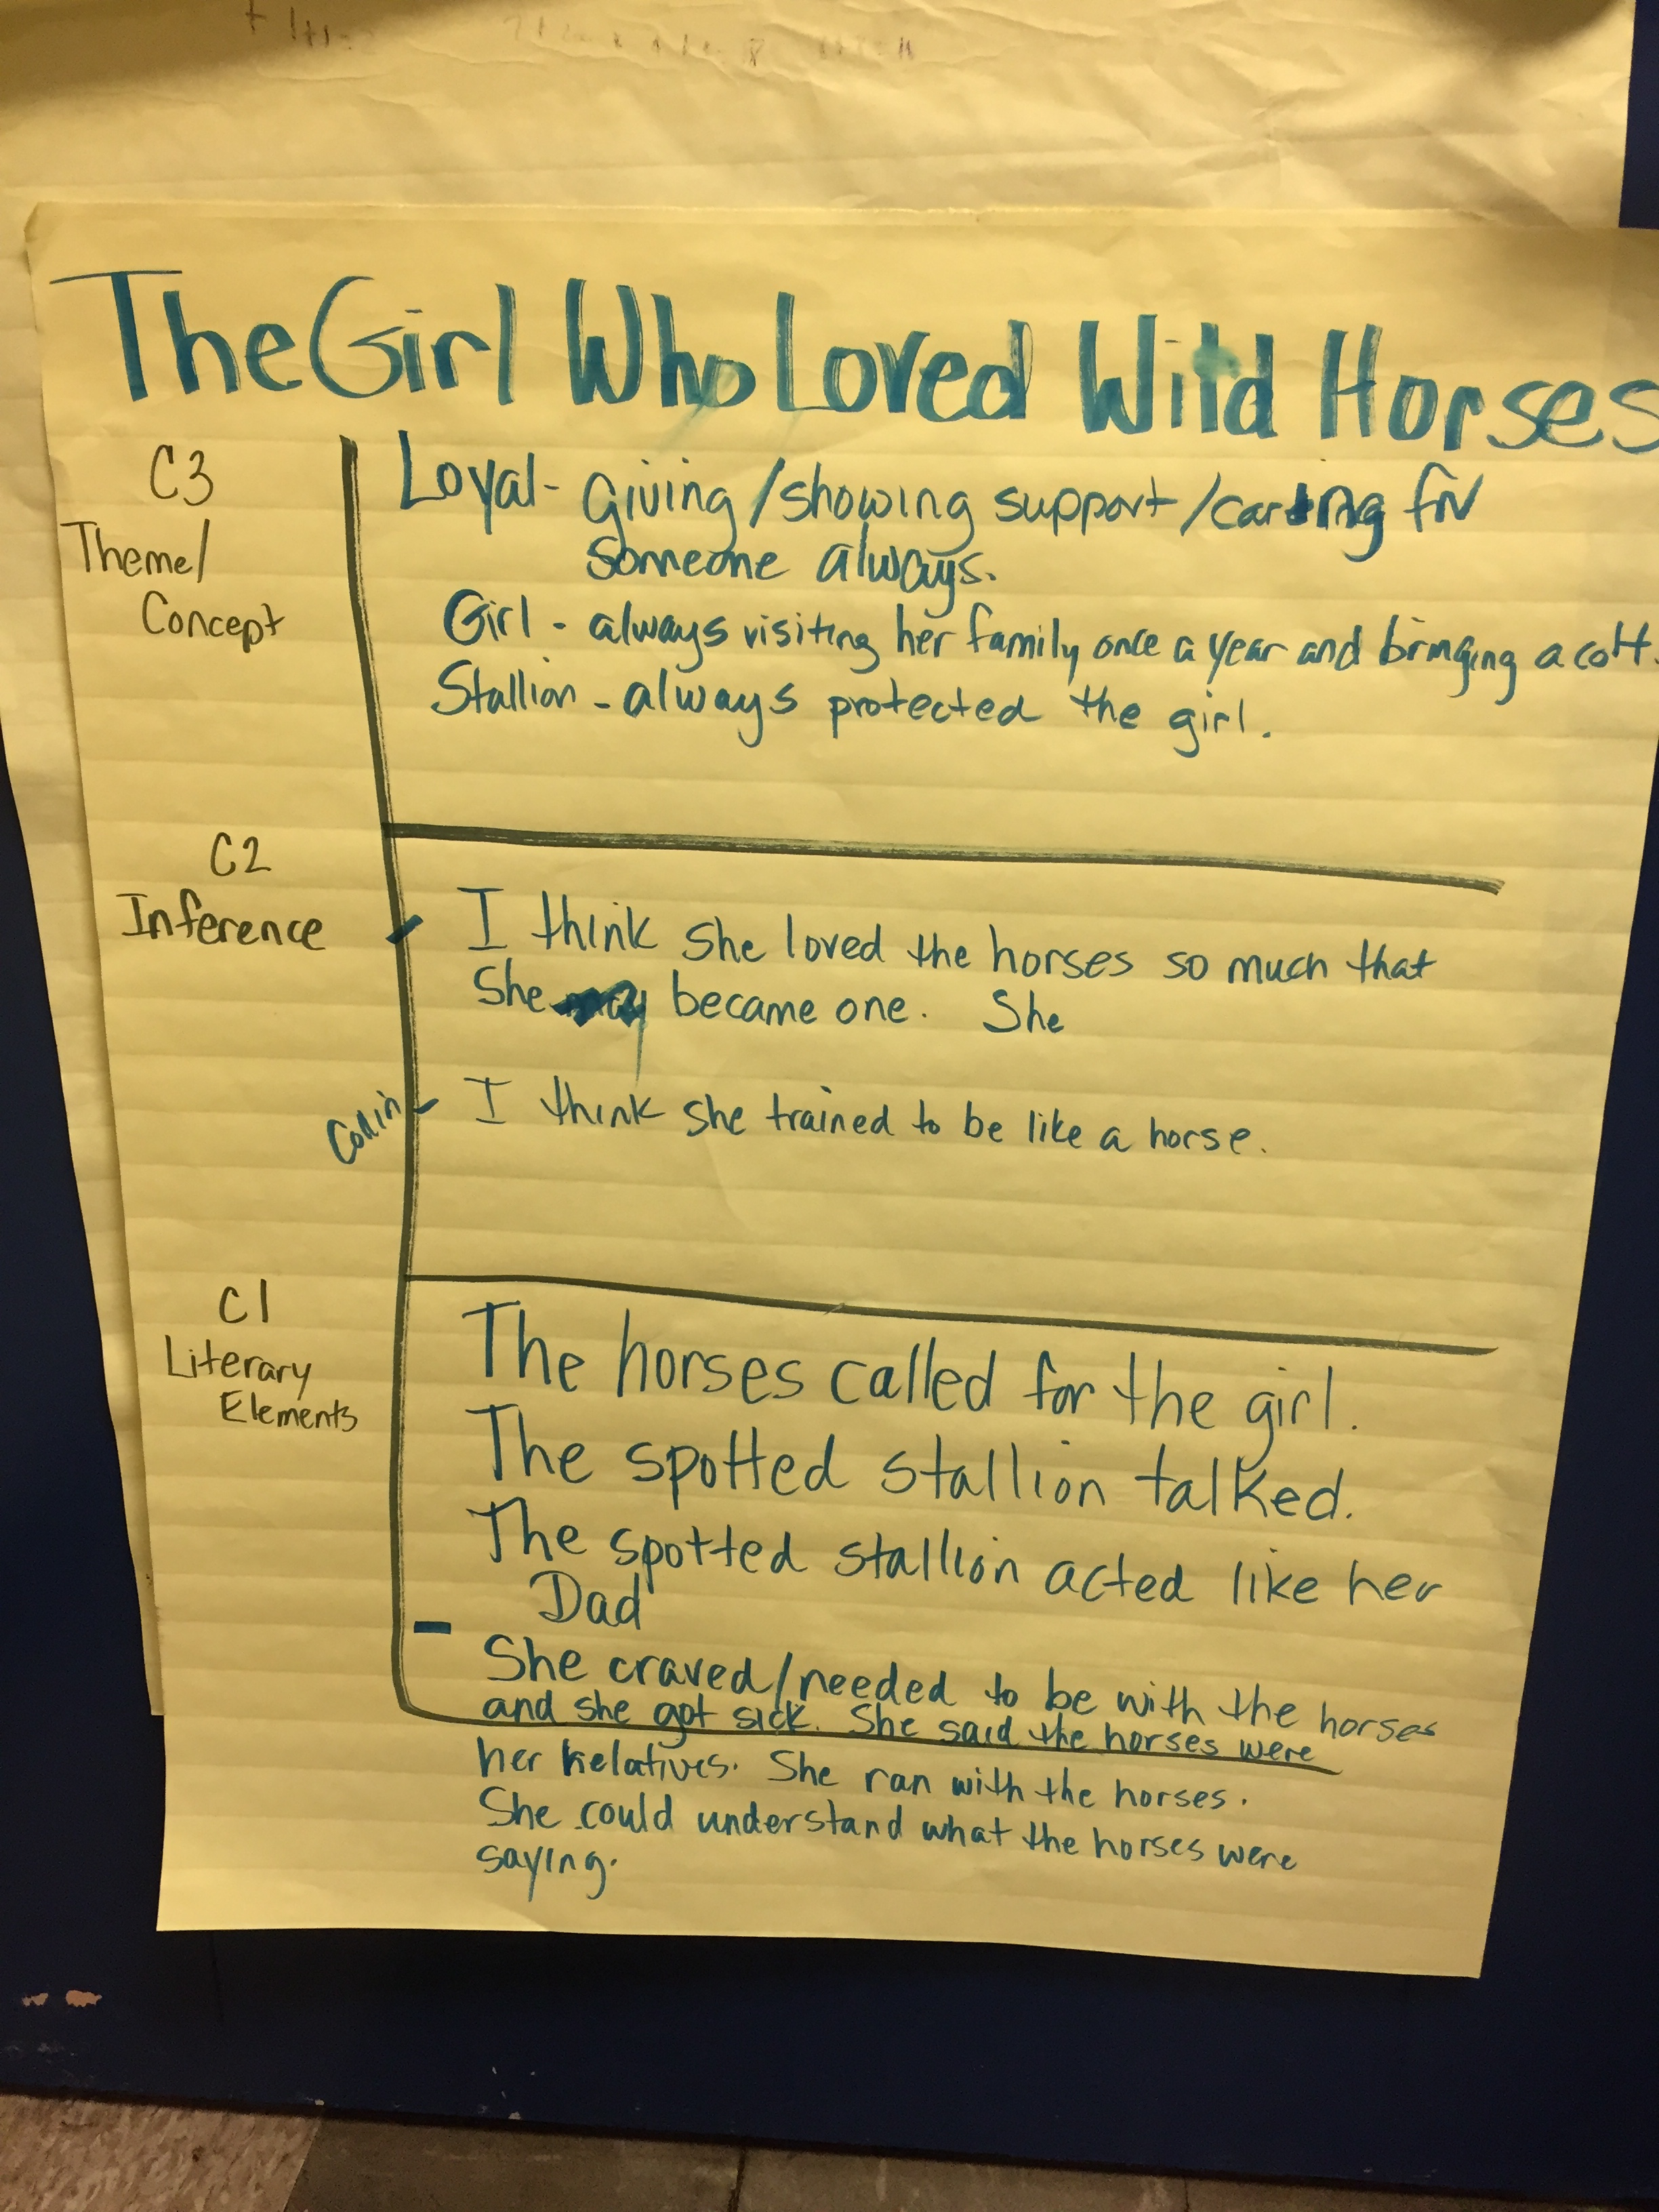 The Girl Who Loved Wild Horses
C3
Theme/
Concept
Loyal- Giving/showing support/caring for
someone always.
Girl - always visiting her family once a year and bringing a colt.
Stallion - always protected the girl.
C2
Inference
I think she loved the horses so much that
She may became one. She
Collin
I think she trained to be like a horse.
C1
Literary
Elements
The horses called for the girl.
The spotted stallion talked.
The spotted stallion acted like her
Dad
- She craved/needed to be with the horses
and she got sick. She said the horses were
her relatives. She ran with the horses.
She could understand what the horses were
saying.